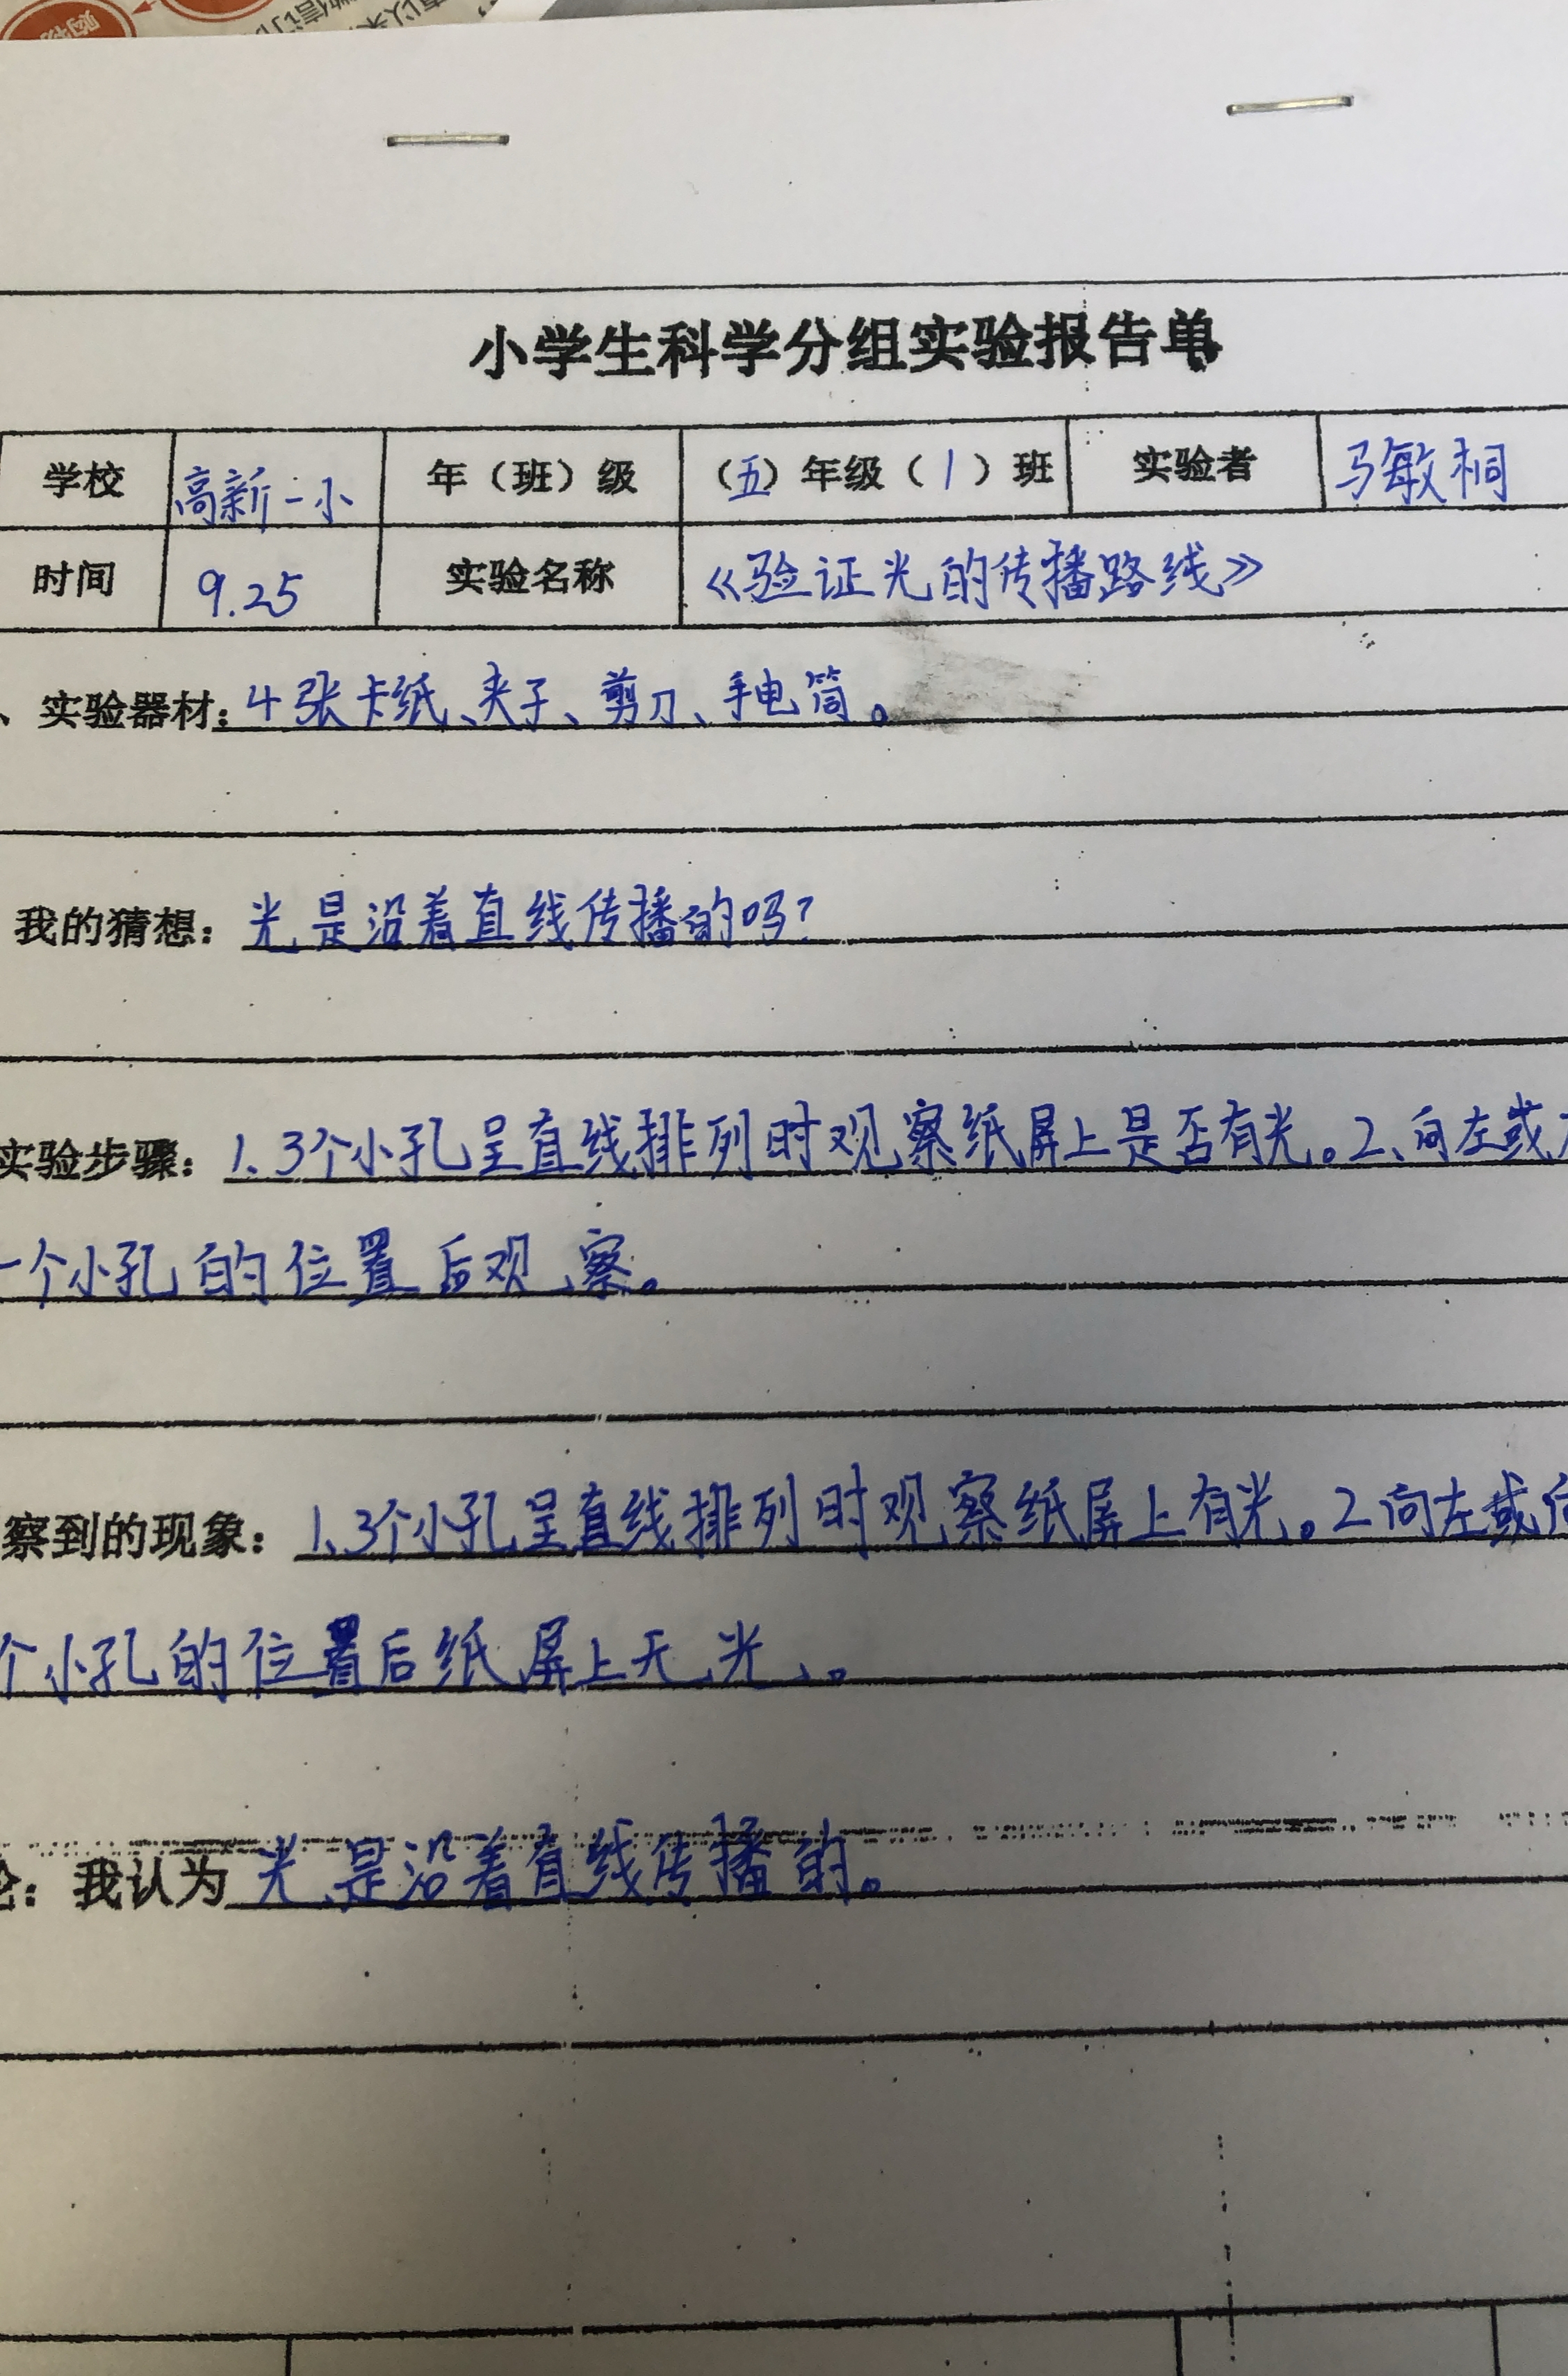 小学生科学分组实验报告单
学校 高新一小 年（班）级 （五）年级（1）班 实验者 马敏桐
时间 9.25 实验名称 《验证光的传播路线》
、实验器材：4张卡纸、夹子、剪刀、手电筒。
我的猜想：光是沿着直线传播的吗？
实验步骤：1、3个小孔呈直线排列时观察纸屏上是否有光。2、向左或
一个小孔的位置后观察。
察到的现象：1、3个小孔呈直线排列时观察纸屏上有光。2向左或
个小孔的位置后纸屏上无光、。
：我认为光是沿着直线传播的。